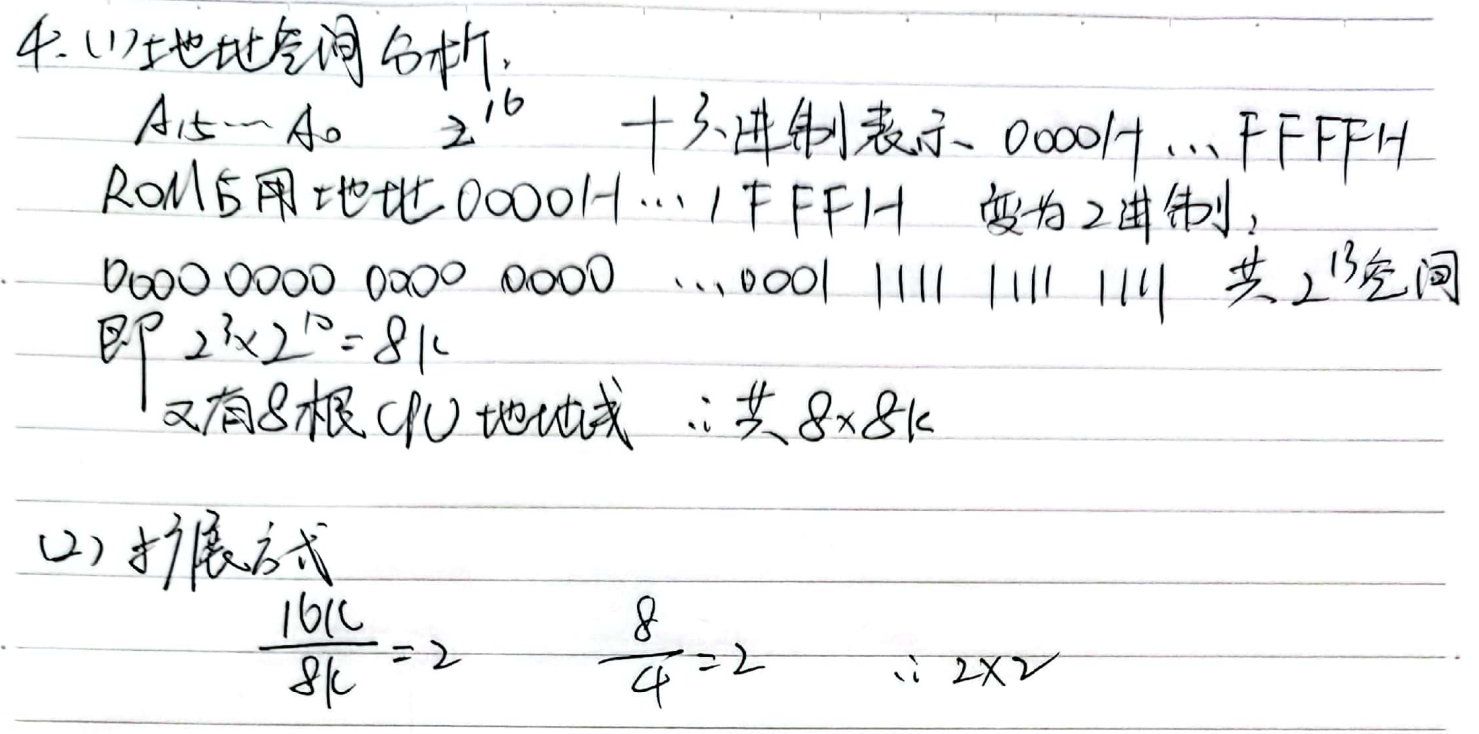 4. (1) 地址空间分析:
A15…A0 2^16 十六进制表示、0000H…FFFFH
ROM占用地址0000H…1FFFH 变为2进制:
0000 0000 0000 0000 …0001 1111 1111 1111 共2^13空间
即 2^3×2^10=8k
又有8根CPU地址线 ∴共8×8k
(2) 扩展方式
16k/8k=2 8/4=2 ∴2×2